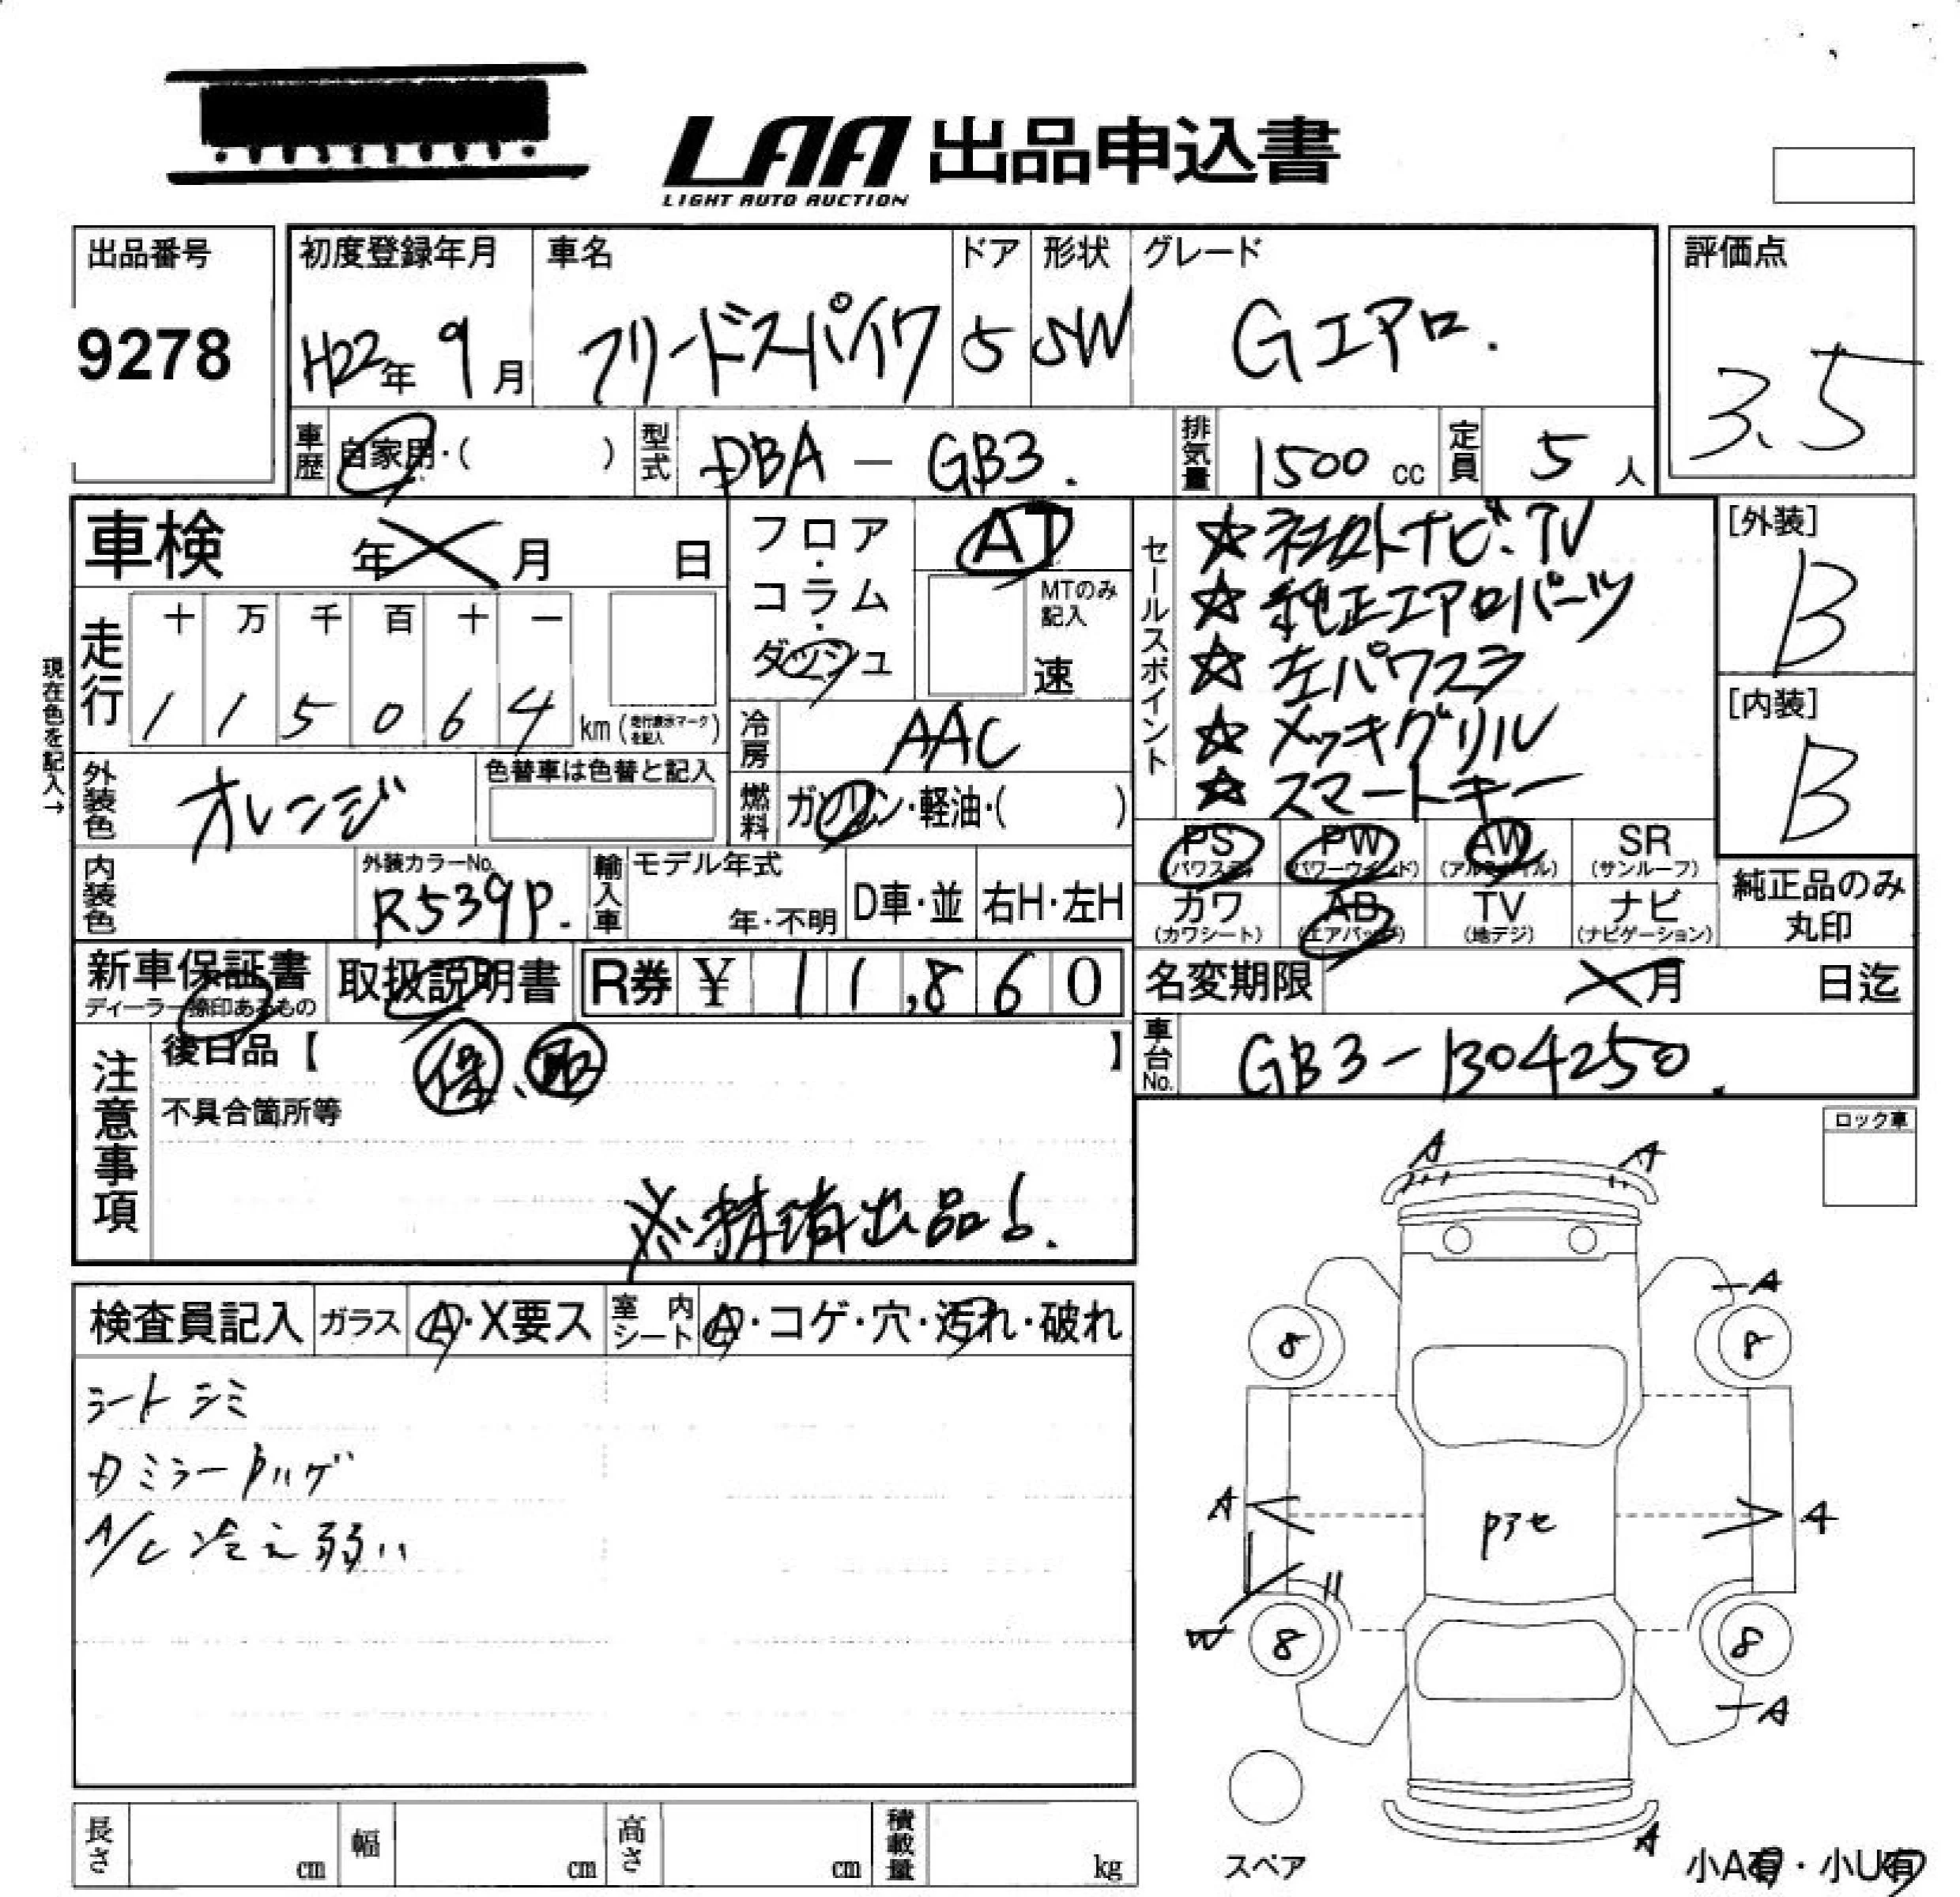 LAA 出品申込書
LIGHT AUTO AUCTION
出品番号
9278
初度登録年月
H22年 9月
車名
フリードスパイク
ドア
5
形状
SW
グレード
Gエアロ.
評価点
3.5
車歴
自家用・( )
型式
DBA - GB3.
排気量
1500 cc
定員
5 人
車検 年 月 日
フロア・コラム・ダッシュ
AT
MTのみ記入
速
セールスポイント
☆ 社外ナビ.TV
☆ 純正エアロパーツ
☆ 左パワスラ
☆ メッキグリル
☆ スマートキー
[外装]
B
[内装]
B
現在色を記入→
走行
十 万 千 百 十 一
1 1 5 0 6 4 km (走行表示マークを記入)
冷房
AAC
外装色
オレンジ
色替車は色替と記入
燃料
ガソリン・軽油・( )
内装色
外装カラーNo.
R539P.
輸入車
モデル年式
年・不明
D車・並
右H・左H
PS (パワステ)
PW (パワーウインド)
AW (アルミホイル)
SR (サンルーフ)
カワ (カワシート)
AB (エアバッグ)
TV (地デジ)
ナビ (ナビゲーション)
純正品のみ丸印
新車保証書
ディーラー捺印あるもの
取扱説明書
R券 ¥ 11,860
名変期限 月 日迄
車台No.
GB3-1304250.
注意事項
後日品【 保、取 】
不具合箇所等
※抹消出品!.
ロック車
検査員記入
ガラス
A・X要ス
室内シート
A・コゲ・穴・汚れ・破れ
シートシミ
Dミラーハゲ
A/C 冷え弱い
A A
A
8 8
A A
W
8 8
A
A
スペア
小A有・小U有
長さ cm
幅 cm
高さ cm
積載量 kg